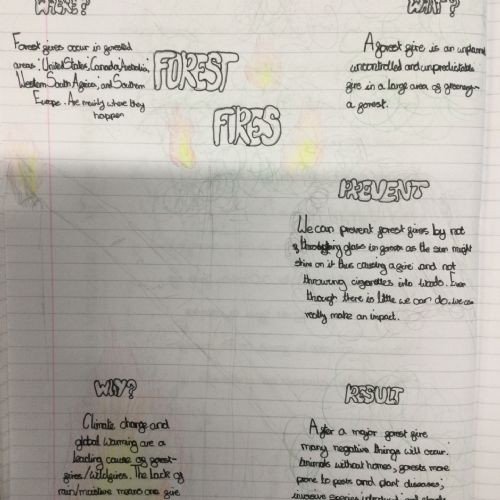 WHERE?
Forest fires occur in forested
areas: United States, Canada, Australia,
Western South Africa, and Southern
Europe. Are mainly where they
happen
FOREST
FIRES
WHAT?
A forest fire is an unplanned
uncontrolled and unpredictable
fire in a large area of greenery-
a forest.
PREVENT
We can prevent forest fires by not
glass in forests as the sun might
shine on it thus causing a fire and not
throwing cigarettes into woods. Even
though there is little we can do, we can
really make an impact.
WHY?
Climate change and
global warming are a
leading cause of forest-
fires/wildfires. The lack of
rain/moisture means one fire
RESULT
After a major forest fire
many negative things will occur.
Animals without homes, forests more
prone to pests and plant diseases,
invasive species